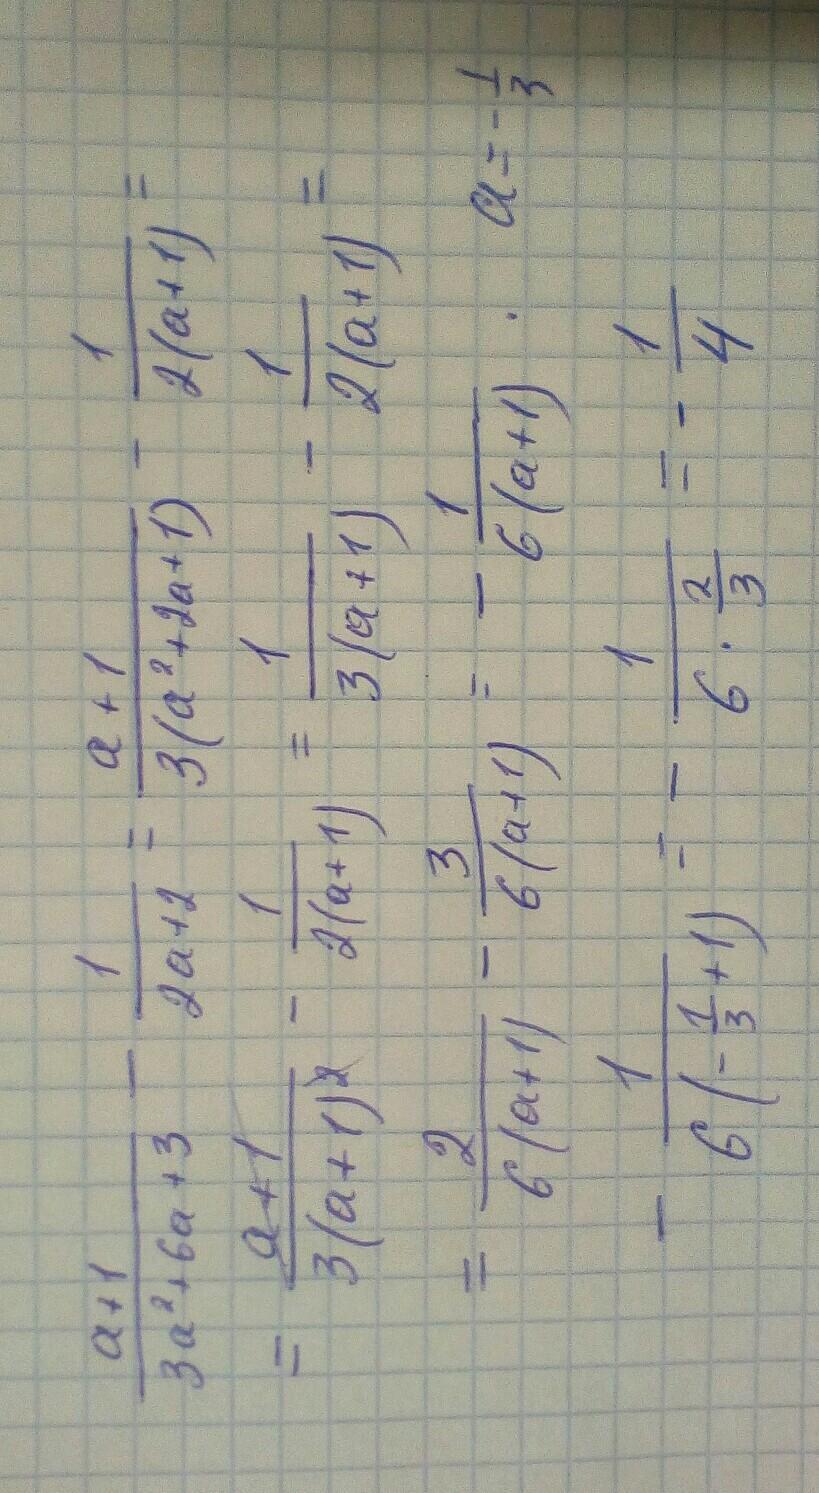 (a+1)/(3a²+6a+3) - 1/(2a+2) = (a+1)/(3(a²+2a+1)) - 1/(2(a+1)) =
= (a+1)/(3(a+1)²) - 1/(2(a+1)) = 1/(3(a+1)) - 1/(2(a+1)) =
= 2/(6(a+1)) - 3/(6(a+1)) = - 1/(6(a+1)) . a = -1/3
- 1/(6(-1/3+1)) = - 1/(6·2/3) = - 1/4